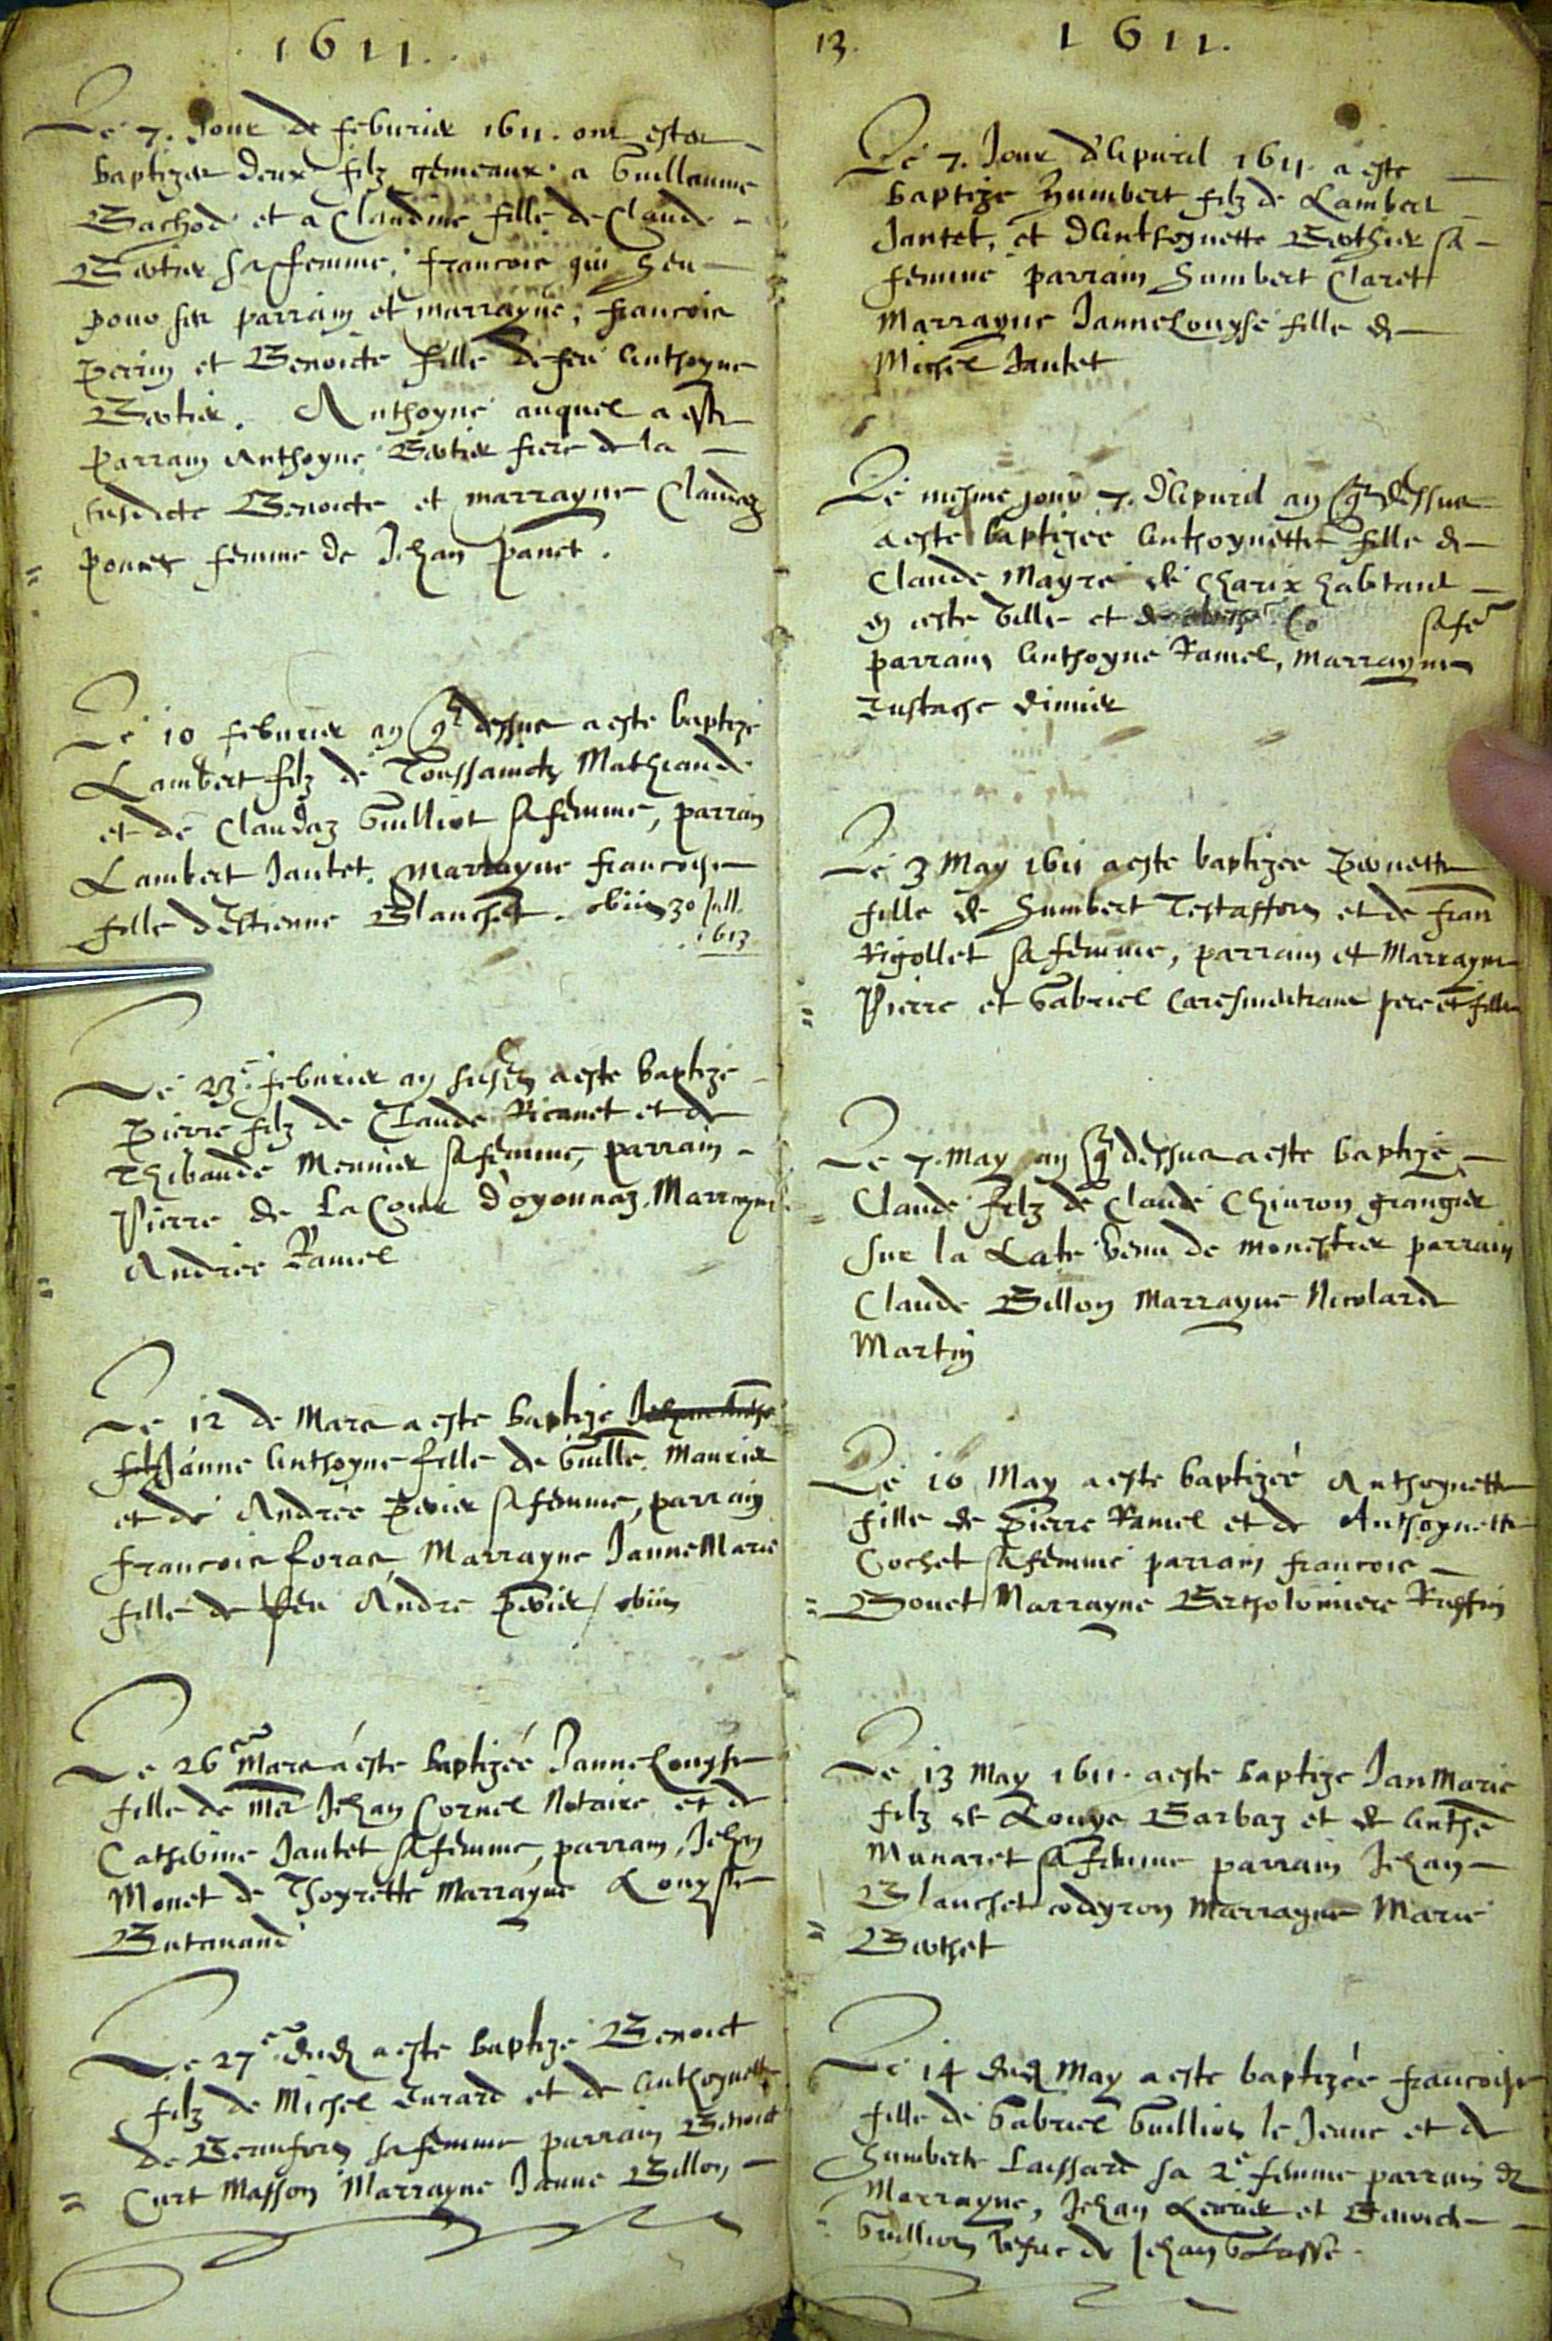 1611.
Le 7. Jour de feburier 1611. ont estez
baptizez deux filz gemeaux a Guillaume
Gachod et a Claudine fille de Claude
Bertier sa femme, francois qui heu
pour ses parrain et marrayne, francois
perrin et Benoicte fille de feu Anthoyne
Bertier. Anthoyne auquel a este
parrain Anthoyne Bertier frere de la
susdicte Benoicte et marrayne Claudaz
femme de Jehan panet.
Le 10 feburier an que dessus a este baptizé
Lambert filz de Toussainctz Mathiand
et de Claudaz Guilliot sa femme, parrain
Lambert Jantet, marrayne francoise
fille d'Estienne Blanchet. obiit 30 Jull.
1613
Le 23e feburier an susd a este baptizé
Pierre filz de Claude Ricanet et de
Thibaude Monnier sa femme, parrain
Pierre de La Cour d'oyonnaz, Marrayne
Andrée Ramel
Le 12 de Mars a este baptizé Jehan Antho
filz Janne Anthoyne fille de Guille. Maurier
et de Andrée perier sa femme, parrain
francois foras, Marrayne Janne Marie
fille de feu André perier / obiit
Le 26e Mars a este baptizée Janne Louyse
fille de Me Jehan Cornel Notaire et de
Catherine Jantet sa femme, parrain Jehan
Monet de Thoyrette Marrayne Louyse
Butavand
Le 27e dud a este baptizé Benoict
filz de Michel durard et de Anthoynette
de Beaufort sa femme parrain Benoict
Curt Masson Marrayne Janne Billon
13.
1611.
Le 7. Jour d'Apuril 1611. a este
baptize Humbert filz de Lambert
Jantet, et d'Anthoynette Berthier sa
femme parrain Humbert Claret
Marrayne Janne Louyse fille de
Michel Jantet
Le mesme jour 7. d'Apuril an que dessus
a este baptizée Anthoynette fille de
Claude Mayre de Charix habitant
en ceste Ville et de sa fe
parrain Anthoyne Ramel, Marrayne
Eustache
Le 3 May 1611 a este baptizée Pernette
fille de Humbert Testaffort et de fran
Rigollet sa femme, parrain et Marrayne
Pierre et Gabriel Caresmentrant pere et fille
Le 7. May an que dessus a este baptizé
Claude filz de Claude Chiuron grangier
sur la Late venu de monestier parrain
Claude Billon Marrayne Nicolarde
Martin
Le 10 May a este baptizeé Anthoynette
fille de Pierre Ramel et de Anthoynette
Cochet sa femme parrain francois
Bouet Marrayne Bertholomiere Ruffin
Le 13 May 1611. a este baptize Jan Marie
filz de Louys Barbaz et de Anthe
Munaret sa femme parrain Jehan
Blanchet codyron Marrayne Marie
Berthet
Le 14 dud May a este baptizée francoise
fille de Gabriel Guilliot le Jeune et de
Humberte Laissard sa 2e femme parrain et
Marrayne, Jehan et Benoicte
Guilliot vefue de Jehan